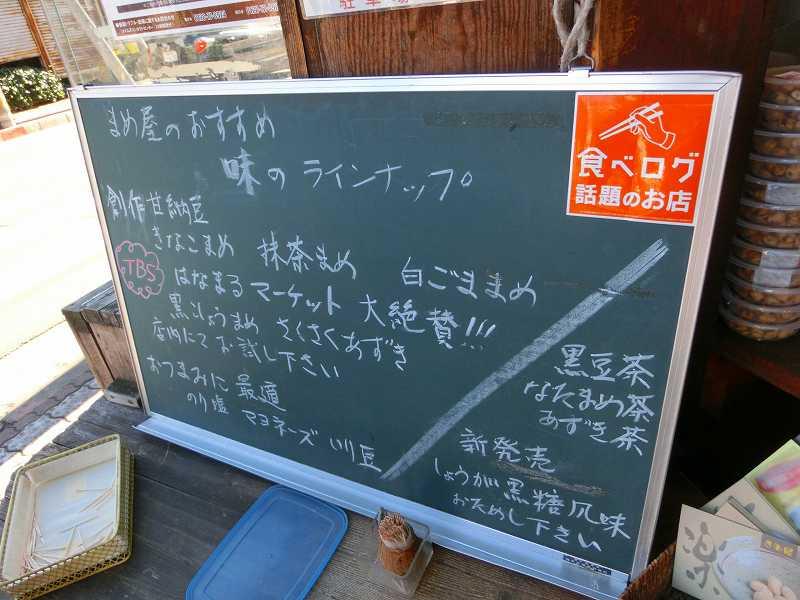 まめ屋のおすすめ
味のラインナップ。
創作甘納豆
きなこまめ 抹茶まめ 白ごままめ
TBS
はなまるマーケット 大絶賛!!!
黒こしょうまめ さくさくあずき
店内にてお試し下さい
おつまみに最適
のり塩 マヨネーズ いり豆
黒豆茶
なたまめ茶
あずき茶
新発売
しょうが黒糖風味
おためし下さい
食べログ
話題のお店
駐車場
楽